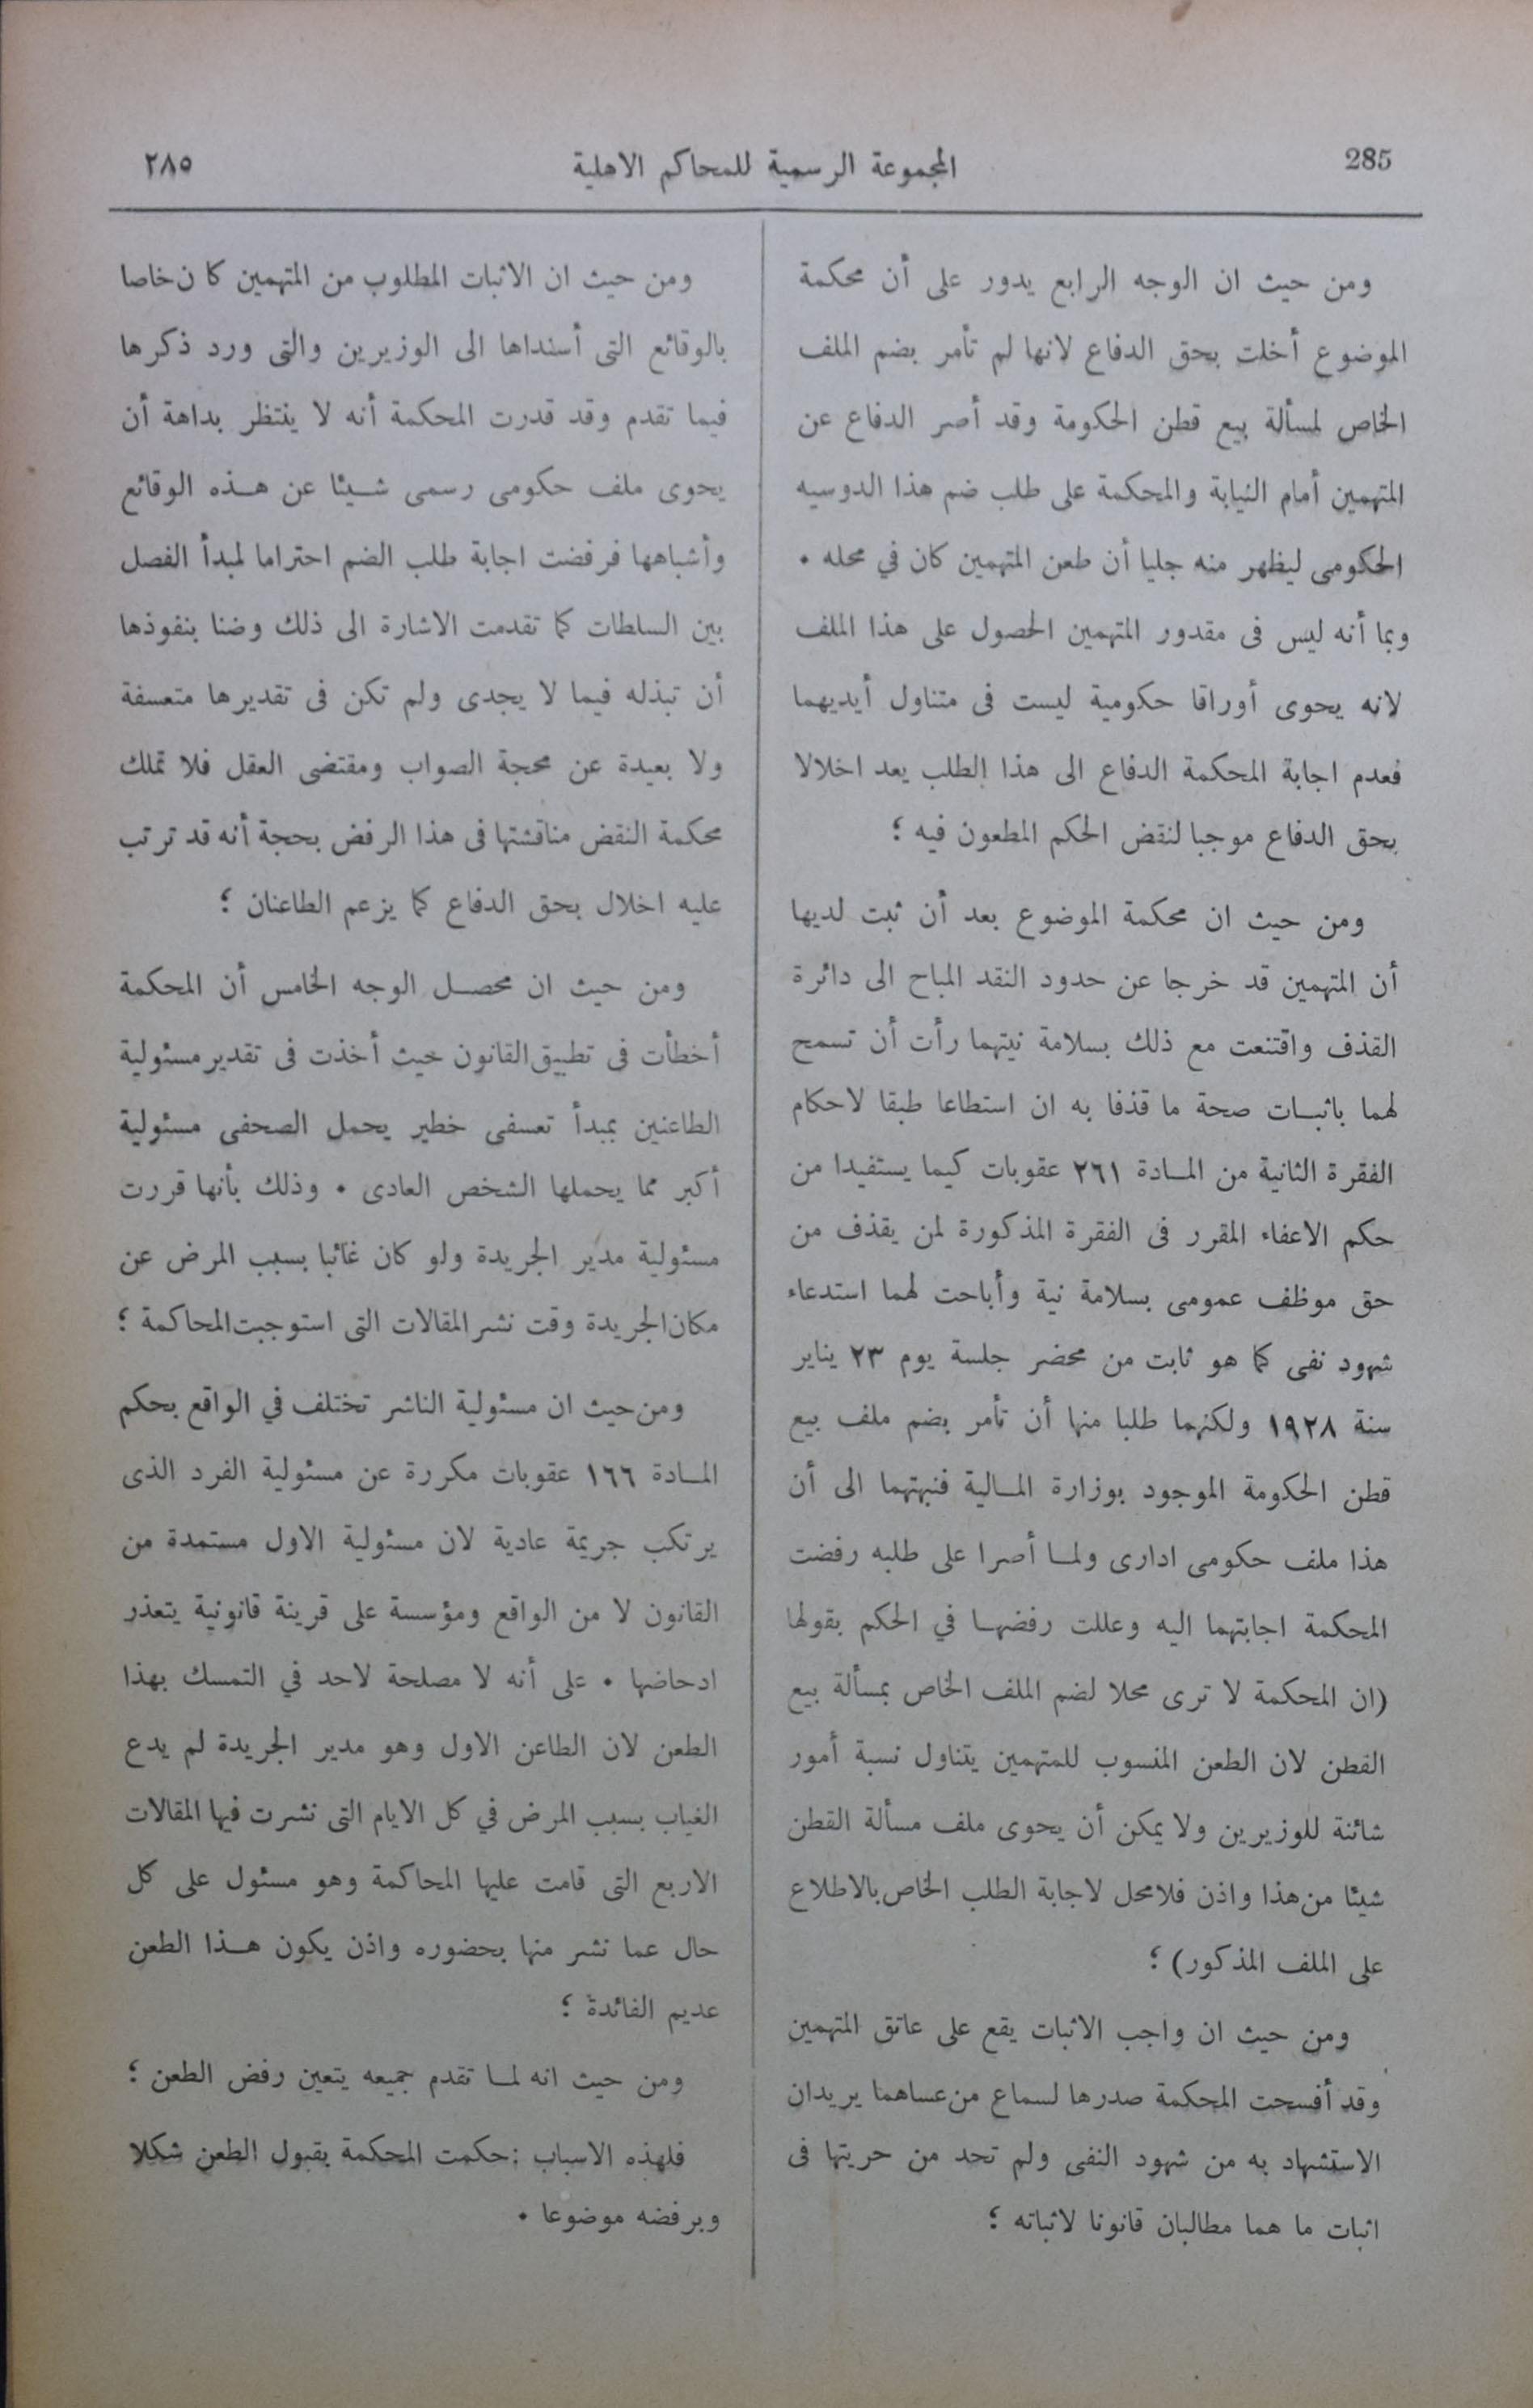 285
المجموعة الرسمية للمحاكم الاهلية
٢٨٥
ومن حيث ان الوجه الرابع يدور على أن محكمة
الموضوع أخلت بحق الدفاع لانها لم تأمر بضم الملف
الخاص لمسألة بيع قطن الحكومة وقد أصر الدفاع عن
المتهمين أمام النيابة والمحكمة على طلب ضم هذا الدوسيه
الحكومى ليظهر منه جليا أن طعن المتهمين كان في محله .
وبما أنه ليس فى مقدور المتهمين الحصول على هذا الملف
لانه يحوى أوراقا حكومية ليست فى متناول أيديهما
فعدم اجابة المحكمة الدفاع الى هذا الطلب يعد اخلالا
بحق الدفاع موجبا لنقض الحكم المطعون فيه ؛
ومن حيث ان محكمة الموضوع بعد أن ثبت لديها
أن المتهمين قد خرجا عن حدود النقد المباح الى دائرة
القذف واقتنعت مع ذلك بسلامة نيتهما رأت أن تسمح
لهما باثبات صحة ما قذفا به ان استطاعا طبقا لاحكام
الفقرة الثانية من المادة ٢٦١ عقوبات كيما يستفيدا من
حكم الاعفاء المقرر فى الفقرة المذكورة لمن يقذف من
حق موظف عمومى بسلامة نية وأباحت لهما استدعاء
شهود نفى كما هو ثابت من محضر جلسة يوم ٢٣ يناير
سنة ١٩٢٨ ولكنهما طلبا منها أن تأمر بضم ملف بيع
قطن الحكومة الموجود بوزارة المالية فنبهتهما الى أن
هذا ملف حكومى ادارى ولما أصرا على طلبه رفضت
المحكمة اجابتهما اليه وعللت رفضها في الحكم بقولها
(ان المحكمة لا ترى محلا لضم الملف الخاص بمسألة بيع
القطن لان الطعن المنسوب للمتهمين يتناول نسبة أمور
شائنة للوزيرين ولا يمكن أن يحوى ملف مسألة القطن
شيئا من هذا واذن فلا محل لاجابة الطلب الخاص بالاطلاع
على الملف المذكور) ؛
ومن حيث ان واجب الاثبات يقع على عاتق المتهمين
وقد أفسحت المحكمة صدرها لسماع من عساهما يريدان
الاستشهاد به من شهود النفى ولم تحد من حريتها فى
اثبات ما هما مطالبان قانونا لاثباته ؛
ومن حيث ان الاثبات المطلوب من المتهمين كان خاصا
بالوقائع التى أسنداها الى الوزيرين والتى ورد ذكرها
فيما تقدم وقد قدرت المحكمة أنه لا ينتظر بداهة أن
يحوى ملف حكومى رسمى شيئا عن هذه الوقائع
وأشباهها فرفضت اجابة طلب الضم احتراما لمبدأ الفصل
بين السلطات كما تقدمت الاشارة الى ذلك وضنا بنفوذها
أن تبذله فيما لا يجدى ولم تكن فى تقديرها متعسفة
ولا بعيدة عن محجة الصواب ومقتضى العقل فلا تملك
محكمة النقض مناقشتها فى هذا الرفض بحجة أنه قد ترتب
عليه اخلال بحق الدفاع كما يزعم الطاعنان ؛
ومن حيث ان محصل الوجه الخامس أن المحكمة
أخطأت فى تطبيق القانون حيث أخذت فى تقدير مسئولية
الطاعنين بمبدأ تعسفى خطير يحمل الصحفى مسئولية
أكبر مما يحملها الشخص العادى . وذلك بأنها قررت
مسئولية مدير الجريدة ولو كان غائبا بسبب المرض عن
مكان الجريدة وقت نشر المقالات التى استوجبت المحاكمة ؛
ومن حيث ان مسئولية الناشر تختلف في الواقع بحكم
المادة ١٦٦ عقوبات مكررة عن مسئولية الفرد الذى
يرتكب جريمة عادية لان مسئولية الاول مستمدة من
القانون لا من الواقع ومؤسسة على قرينة قانونية يتعذر
ادحاضها . على أنه لا مصلحة لاحد في التمسك بهذا
الطعن لان الطاعن الاول وهو مدير الجريدة لم يدع
الغياب بسبب المرض في كل الايام التى نشرت فيها المقالات
الاربع التى قامت عليها المحاكمة وهو مسئول على كل
حال عما نشر منها بحضوره واذن يكون هذا الطعن
عديم الفائدة ؛
ومن حيث انه لما تقدم جميعه يتعين رفض الطعن ؛
فلهذه الاسباب : حكمت المحكمة بقبول الطعن شكلا
وبرفضه موضوعا .